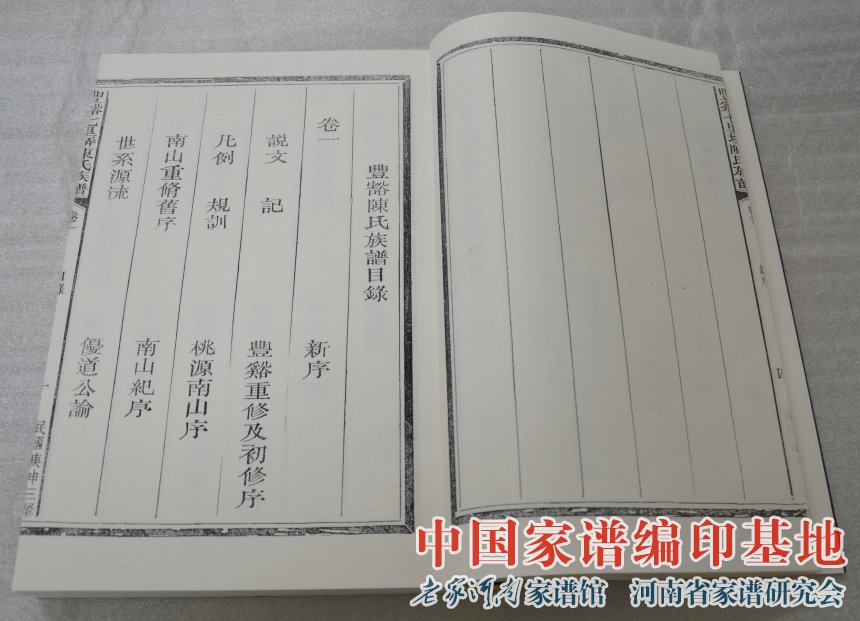 豐谿陳氏族譜目錄
卷一
新序
説文 記
豐谿重修及初修序
凡例 規訓
桃源南山序
南山重脩舊序
南山紀序
世系源流
優道公諭
陳氏族譜
卷一
目錄
一
民國庚申三修
陳氏族譜
四
中国家谱编印基地
老家河南家谱馆 河南省家谱研究会